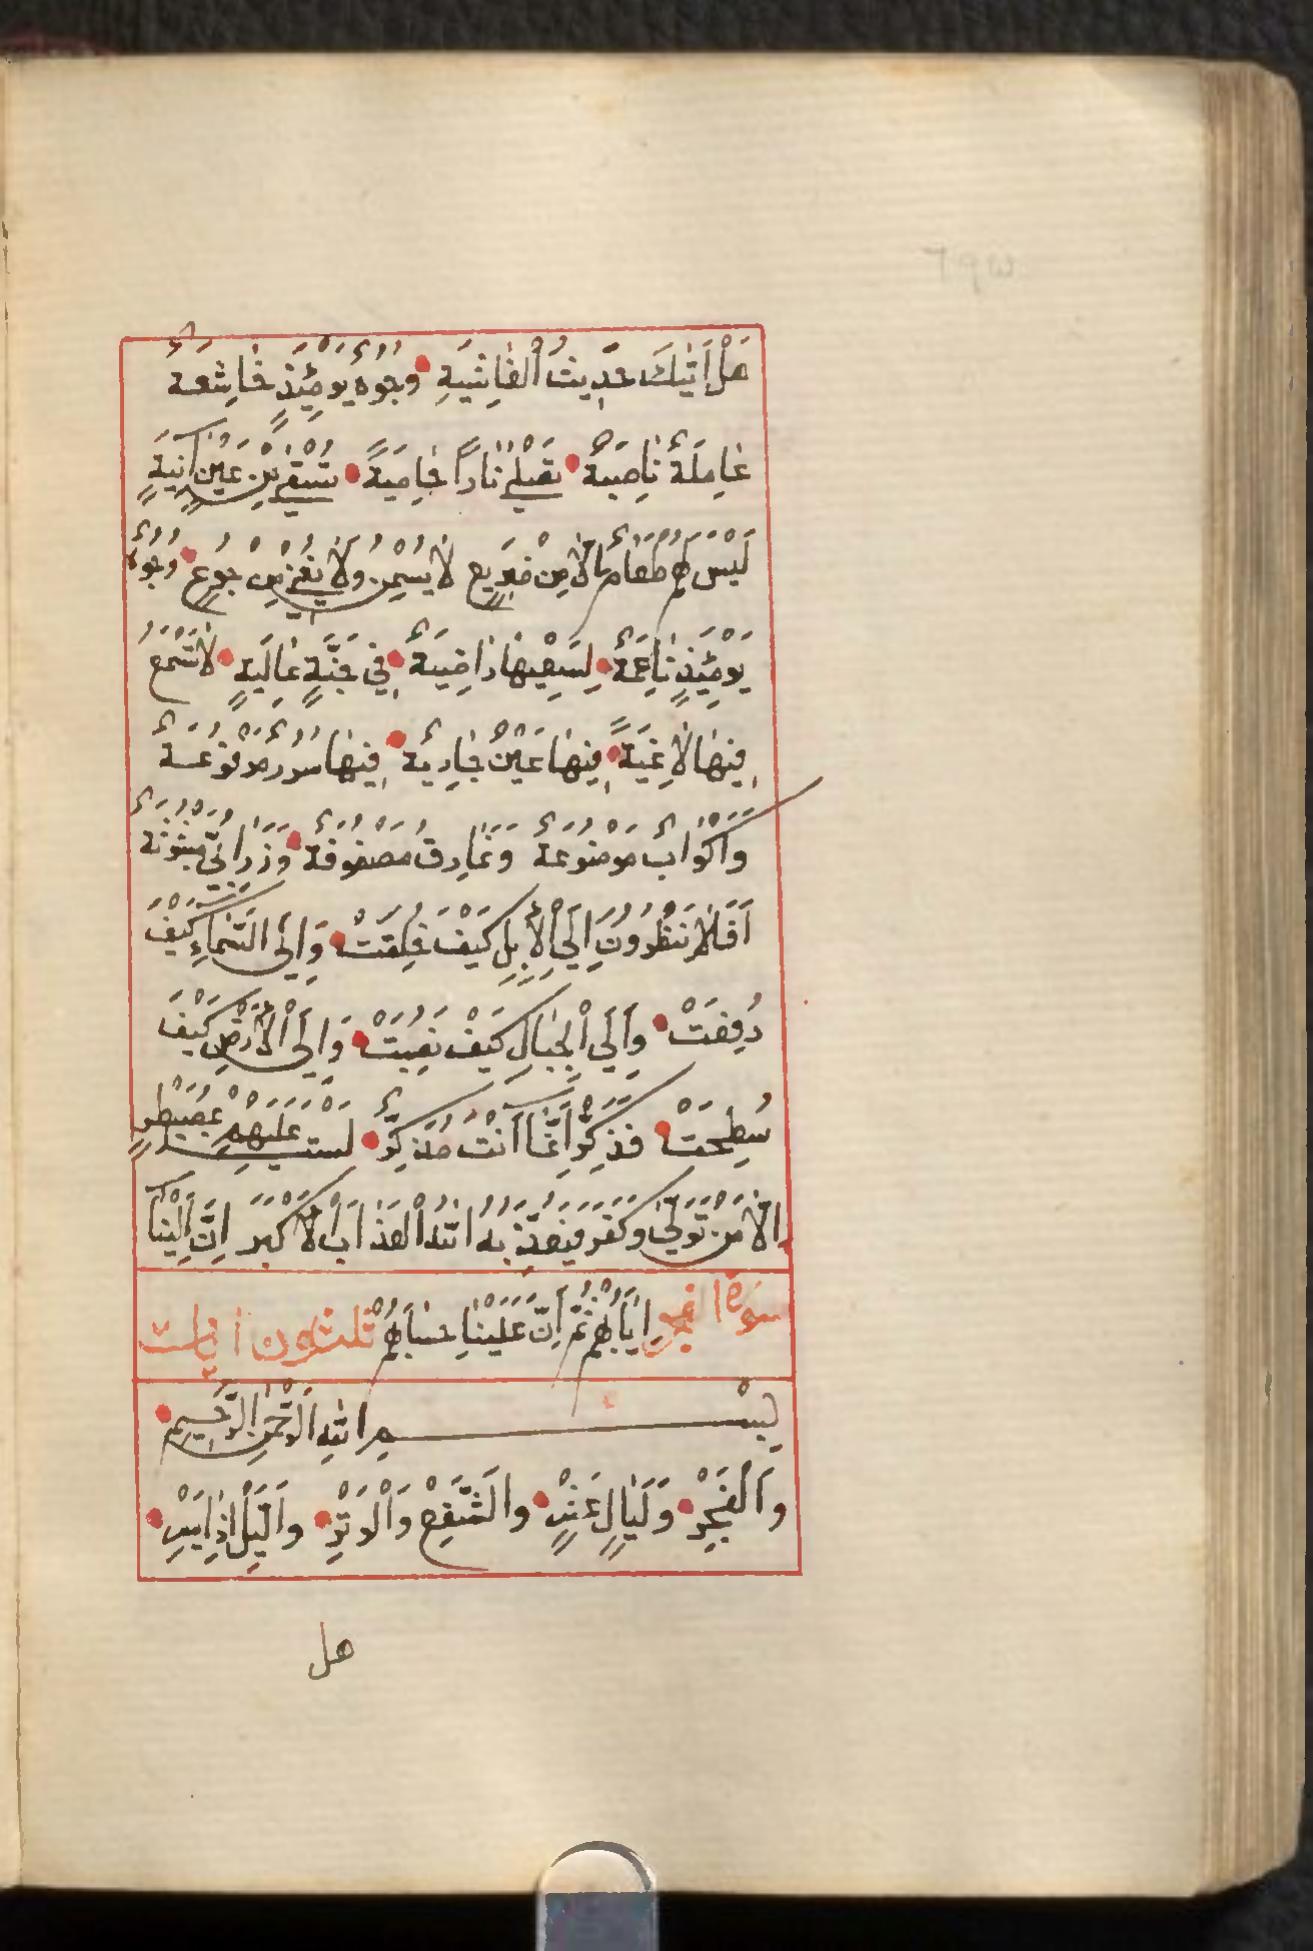 هَلْ اَتٰيكَ حَدِيثُ الْغَاشِيَةِ وُجُوهٌ يَوْمَئِذٍ خَاشِعَةٌ
عَامِلَةٌ نَاصِبَةٌ تَصْلٰى نَاراً حَامِيَةً تُسْقٰى مِنْ عَيْنٍ اٰنِيَةٍ
لَيْسَ لَهُمْ طَعَامٌ اِلَّا مِنْ ضَرِيعٍ لَا يُسْمِنُ وَلَا يُغْنِى مِنْ جُوعٍ وُجُوهٌ
يَوْمَئِذٍ نَاعِمَةٌ لِسَعْيِهَا رَاضِيَةٌ فِى جَنَّةٍ عَالِيَةٍ لَا تَسْمَعُ
فِيهَا لَاغِيَةً فِيهَا عَيْنٌ جَارِيَةٌ فِيهَا سُرُرٌ مَرْفُوعَةٌ
وَاَكْوَابٌ مَوْضُوعَةٌ وَنَمَارِقُ مَصْفُوفَةٌ وَزَرَابِىُّ مَبْثُوثَةٌ
اَفَلَا يَنْظُرُونَ اِلَى الْاِبِلِ كَيْفَ خُلِقَتْ وَاِلَى السَّمَاءِ كَيْفَ
رُفِعَتْ وَاِلَى الْجِبَالِ كَيْفَ نُصِبَتْ وَاِلَى الْاَرْضِ كَيْفَ
سُطِحَتْ فَذَكِّرْ اِنَّمَا اَنْتَ مُذَكِّرٌ لَسْتَ عَلَيْهِمْ بِمُصَيْطِرٍ
اِلَّا مَنْ تَوَلّٰى وَكَفَرَ فَيُعَذِّبُهُ اللهُ الْعَذَابَ الْاَكْبَرَ اِنَّ اِلَيْنَا
اِيَابَهُمْ ثُمَّ اِنَّ عَلَيْنَا حِسَابَهُمْ
سورة الفجر ثلثون ايات
بِسْمِ اللهِ الرَّحْمٰنِ الرَّحِيمِ
وَالْفَجْرِ وَلَيَالٍ عَشْرٍ وَالشَّفْعِ وَالْوَتْرِ وَالَّيْلِ اِذَا يَسْرِ
هل